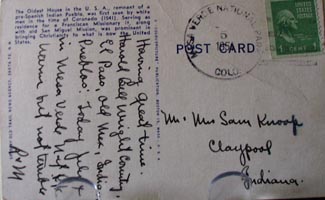 The Oldest House in the U. S. A., remnant of a
pre-Spanish Indian Pueblo, was first seen by white
men in the time of Coronado (1541). Serving as
residence for a Franciscan Missionary it, along
with old San Miguel Mission, was prominent in
bringing Christianity to what is now the United
States.
POST CARD
MESA VERDE NATIONAL
5
COLO.
1 CENT
Having great time.
Harold Bell Wright Country,
El Paso, old Mex, Indian
Pueblos. Today July 4
in Mesa Verde Nat Pk
warm but not terrible
Mr. Mrs Sam Knoop
Claypool
Indiana.